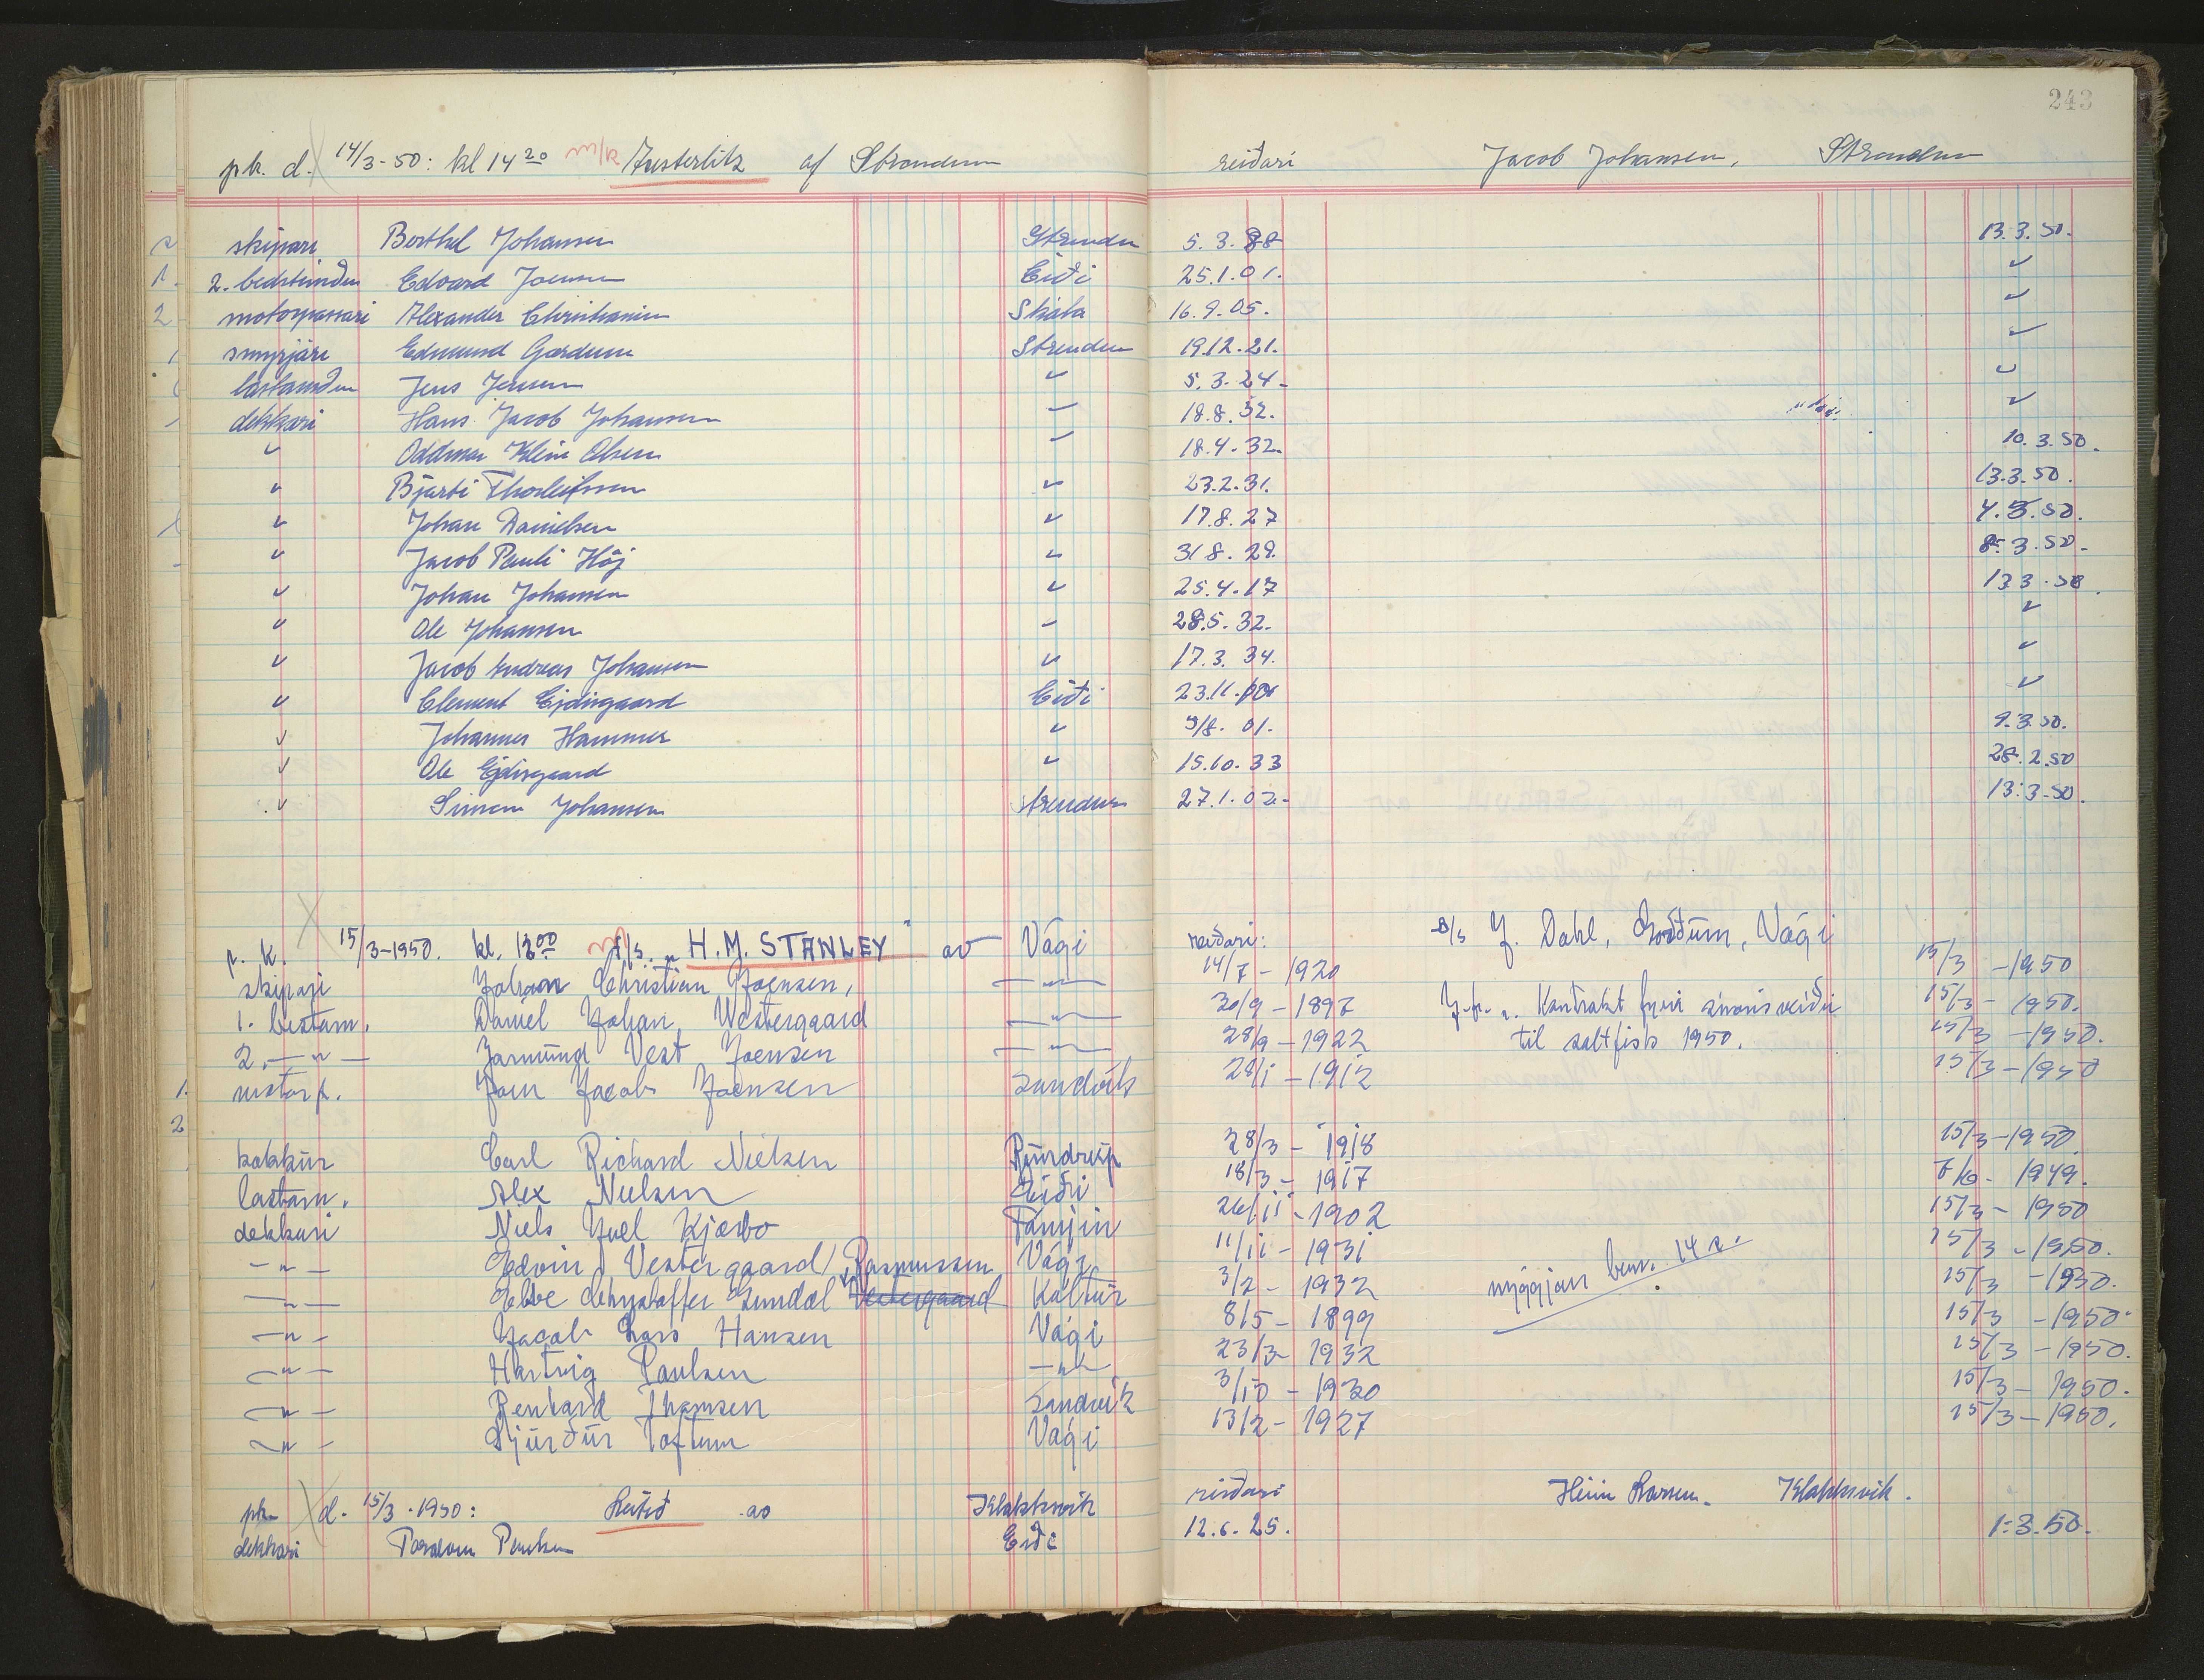 243
pk. d. 14/3-50: kl 14 20 m/k Austerlitz af Strondum reiðari Jacob Johansen, Strondum
2 skipari Berthel Johansen Strendur 5.3.88 13.3.50.
1. 2. bedstemðm Edvard Joensen Eiði 25.1.01. "
2 motorpassari Alexander Christiansen Skála 16.9.05. "
1 smyrjari Edmund Gærdum Strendur 19.12.21. "
lastamðm Jens Jensen " 5.3.24 "
dekkari Hans Jacob Johansen " 18.8.32. "
" Oddmar Klein Olsen " 18.4.32 10.3.50.
" Bjarti Thorleifsson " 23.2.31. 13.3.50.
1 " Johan Danielsen " 17.8.27 4.3.50.
" Jacob Pauli Höj " 31.8.29. 8.3.50.
" Johan Johansen " 25.4.17 13.3.50
" Ole Johansen " 28.5.32. "
" Jacob Andreas Johansen " 17.3.34. "
" Clement Ejdisgaard Eiði 23.11. "
" Johannes Hammer " 3/8. 01. 9.3.50.
" Ole Ejdisgaard " 15.10.33 28.2.50
" Simon Johansen Strendur 27.1.02. 13.3.50.
p. k. 15/3-1950. kl. 13 00 f/s. "H. M. STANLEY" av Vági reiðari: s/s J. Dahl, Vági
skipari Johan Christian Joensen, -"- 14/7 - 1920 15/3 - 1950
1. bestam. Daniel Johan Westergaard -"- 30/9 - 1897 J. f. Kontrakt fyri snørisveiðu 15/3 - 1950.
2. -"- Jarmund Vest Joensen -"- 28/9 - 1922 til saltfisk 1950. 15/3 - 1950.
1. motorp. Jóan Jacob Joensen Sandvík 28/1 - 1912 15/3 - 1950
2
kokkur Carl Richard Nielsen 28/3 - 1918 15/3 - 1950
lastam. Alex Nielsen Eiði 18/3 - 1917 - 1949.
dekkari Niels Juel Kjærbo Famjin 26/11 - 1902 15/3 - 1950
-"- Edvin Vestergaard Rasmussen Vági 11/11 - 1931 15/3 - 1950.
-"- Ebbe Sundal Vestergaard Kaltur 3/2 - 1932 nýggjan bem. 14 r. 15/3 - 1950.
-"- Jacob Lars Hansen Vági 8/5 - 1899 15/3 - 1950
-"- Hartvig Poulsen -"- 23/3 - 1932 15/3 - 1950.
-"- Renhard Thomsen Sandvik 3/10 - 1930 15/3 - 1950.
-"- Sjúrður Toftum Vági 13/2 - 1927 15/3 - 1950.
pk. d. 15/3 - 1950: av Klakksvik reiðari Heini Larsen. Klakksvik.
dekkari Poulsen Eiði 12.6.25. 1.3.50.